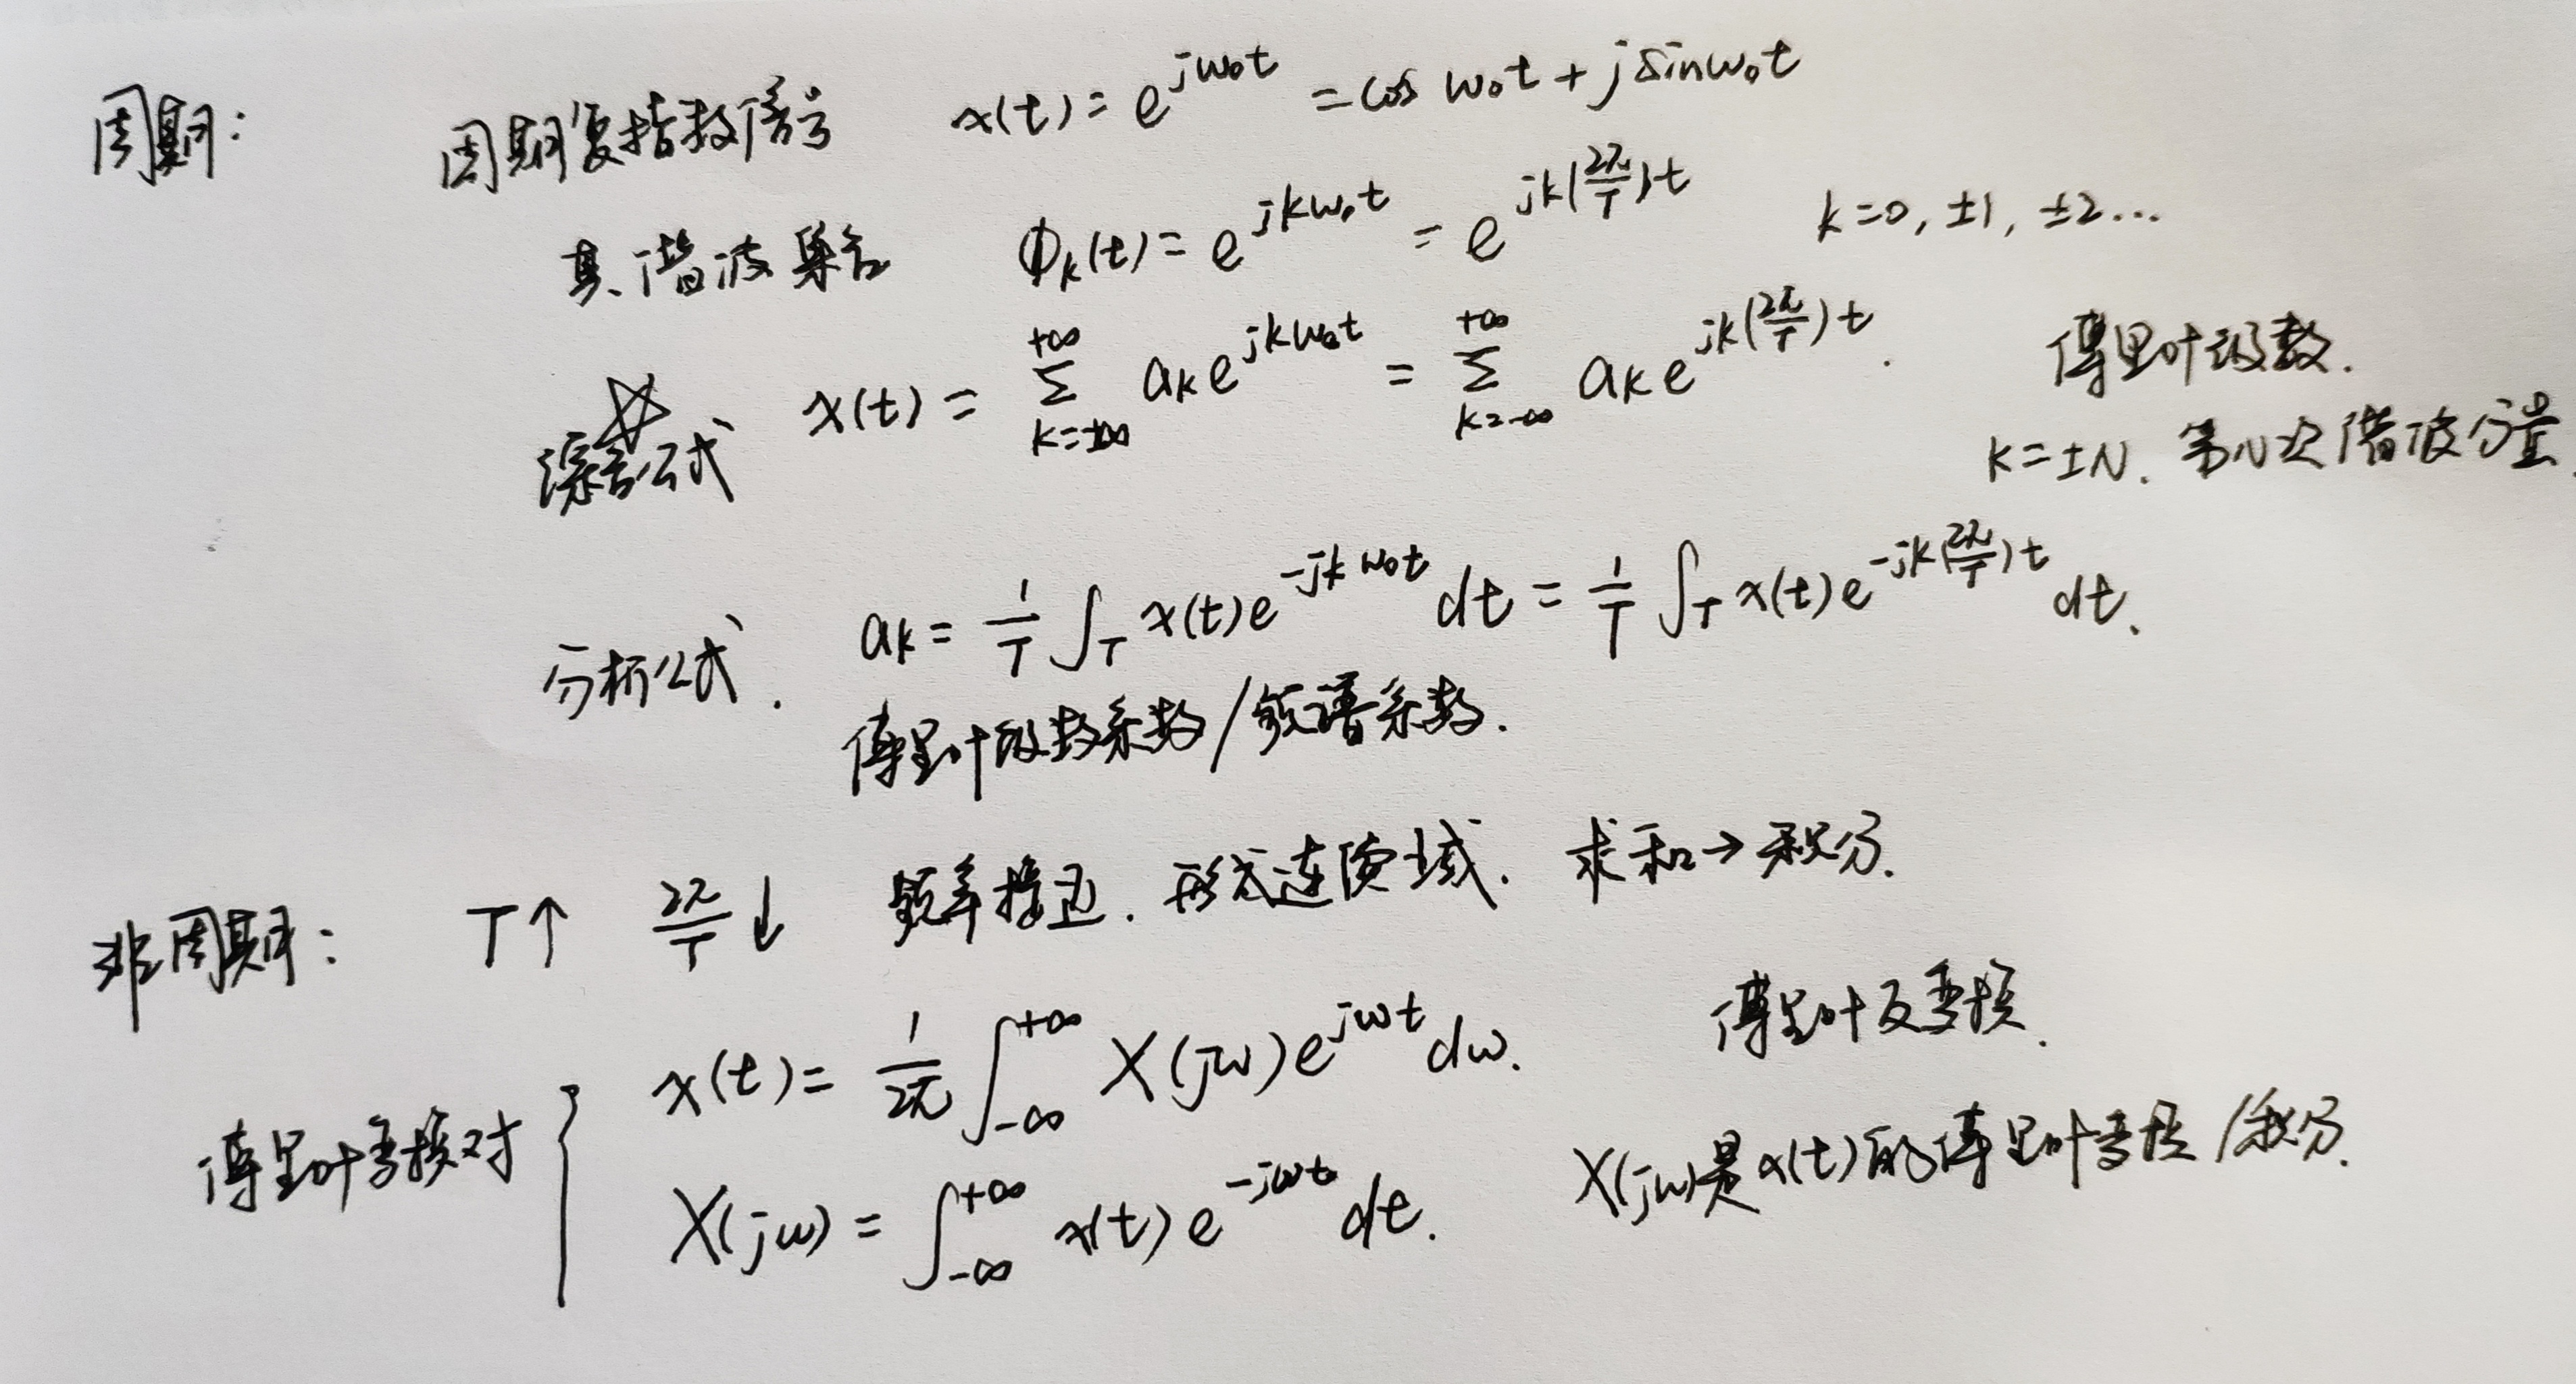 周期: 周期复指数信号 x(t) = e^{jω₀t} = cos ω₀t + j sinω₀t
其谐波集合 Φₖ(t) = e^{jkω₀t} = e^{jk(2π/T)t} k=0, ±1, ±2...
☆
综合公式 x(t) = Σ_{k=-∞}^{+∞} aₖe^{jkω₀t} = Σ_{k=-∞}^{+∞} aₖe^{jk(2π/T)t}. 傅里叶级数.
k=±N. 第N次谐波分量.
分析公式. aₖ = 1/T ∫_T x(t)e^{-jkω₀t} dt = 1/T ∫_T x(t)e^{-jk(2π/T)t} dt.
傅里叶级数系数/频谱系数.
非周期: T↑ 2π/T↓ 频率接近. 形式连续域. 求和→积分.
傅里叶变换对 { x(t) = 1/2π ∫_{-∞}^{+∞} X(jω)e^{jωt}dω. 傅里叶反变换.
X(jω) = ∫_{-∞}^{+∞} x(t)e^{-jωt}dt. X(jω)是x(t)的傅里叶变换/积分.